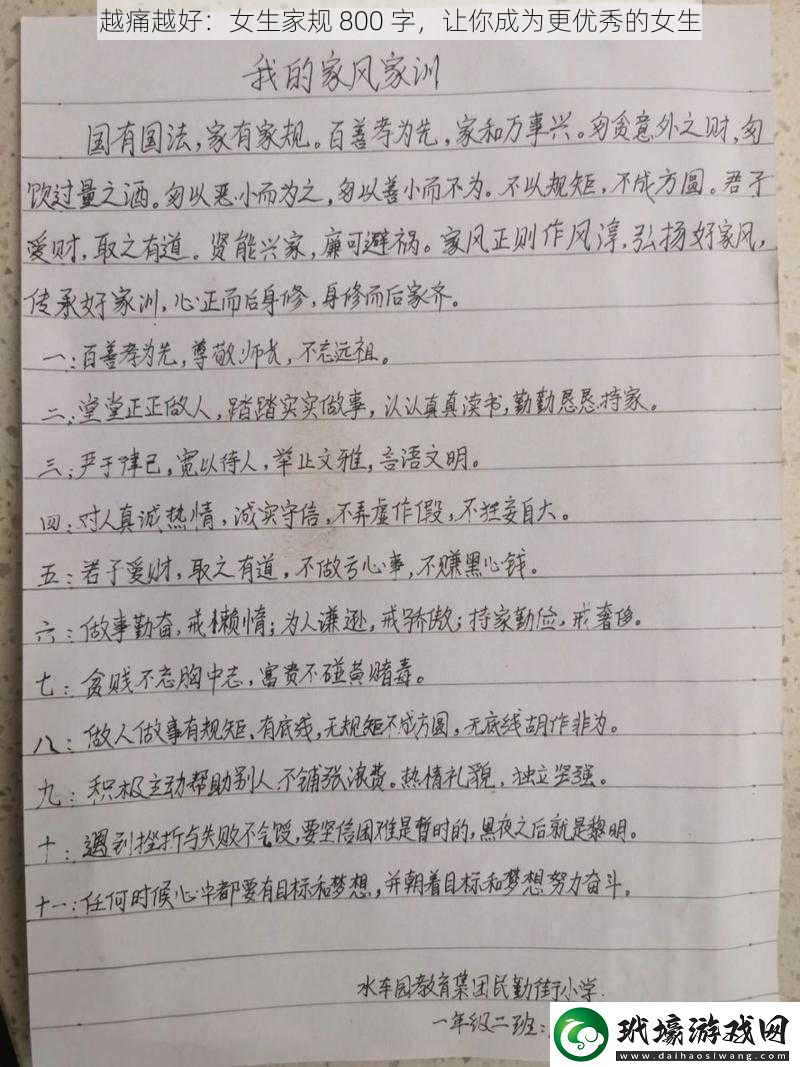 越痛越好：女生家规 800 字，让你成为更优秀的女生
我的家风家训
国有国法，家有家规。百善孝为先，家和万事兴。勿贪意外之财，勿
饮过量之酒。勿以恶小而为之，勿以善小而不为。不以规矩，不成方圆。君子
爱财，取之有道。贤能兴家，廉可避祸。家风正则作风淳，弘扬好家风，
传承好家训，心正而后身修，身修而后家齐。
一：百善孝为先，尊敬师长，不忘远祖。
二：堂堂正正做人，踏踏实实做事，认认真真读书，勤勤恳恳持家。
三：严于律已，宽以待人，举止文雅，言语文明。
四：对人真诚热情，诚实守信，不弄虚作假，不狂妄自大。
五：君子爱财，取之有道，不做亏心事，不赚黑心钱。
六：做事勤奋，戒懒惰；为人谦逊，戒骄傲；持家勤俭，戒奢侈。
七：贫贱不忘胸中志，富贵不碰黄赌毒。
八：做人做事有规矩、有底线，无规矩不成方圆，无底线胡作非为。
九：积极主动帮助别人，不铺张浪费。热情礼貌，独立坚强。
十：遇到挫折与失败不气馁，要坚信困难是暂时的，黑夜之后就是黎明。
十一：任何时候心中都要有目标和梦想，并朝着目标和梦想努力奋斗。
水车园教育集团民勤街小学
一年级二班：
玳壕游戏网
www.daihaosiwang.com